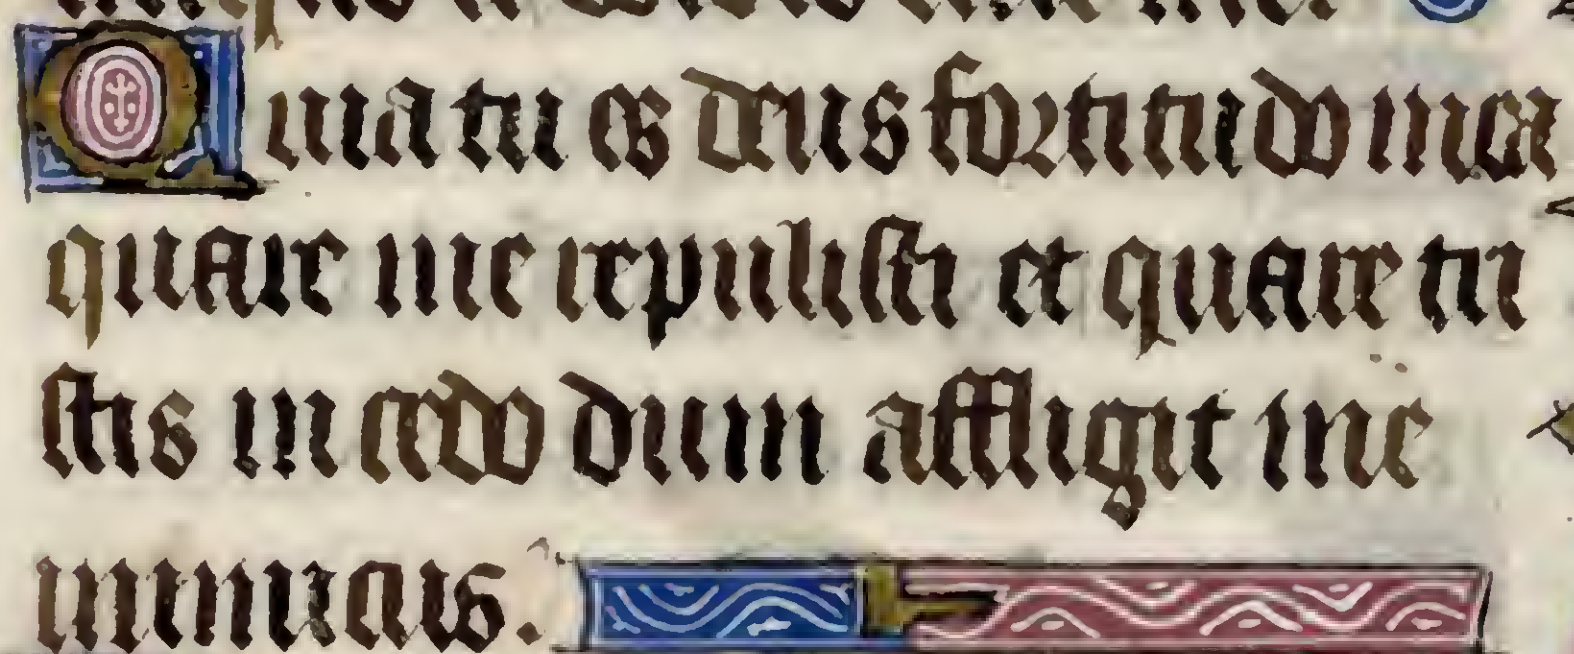 Quia tu es deus fortitudo mea
quare me repulisti et quare tri
stis incedo dum affligit me
inimicus.